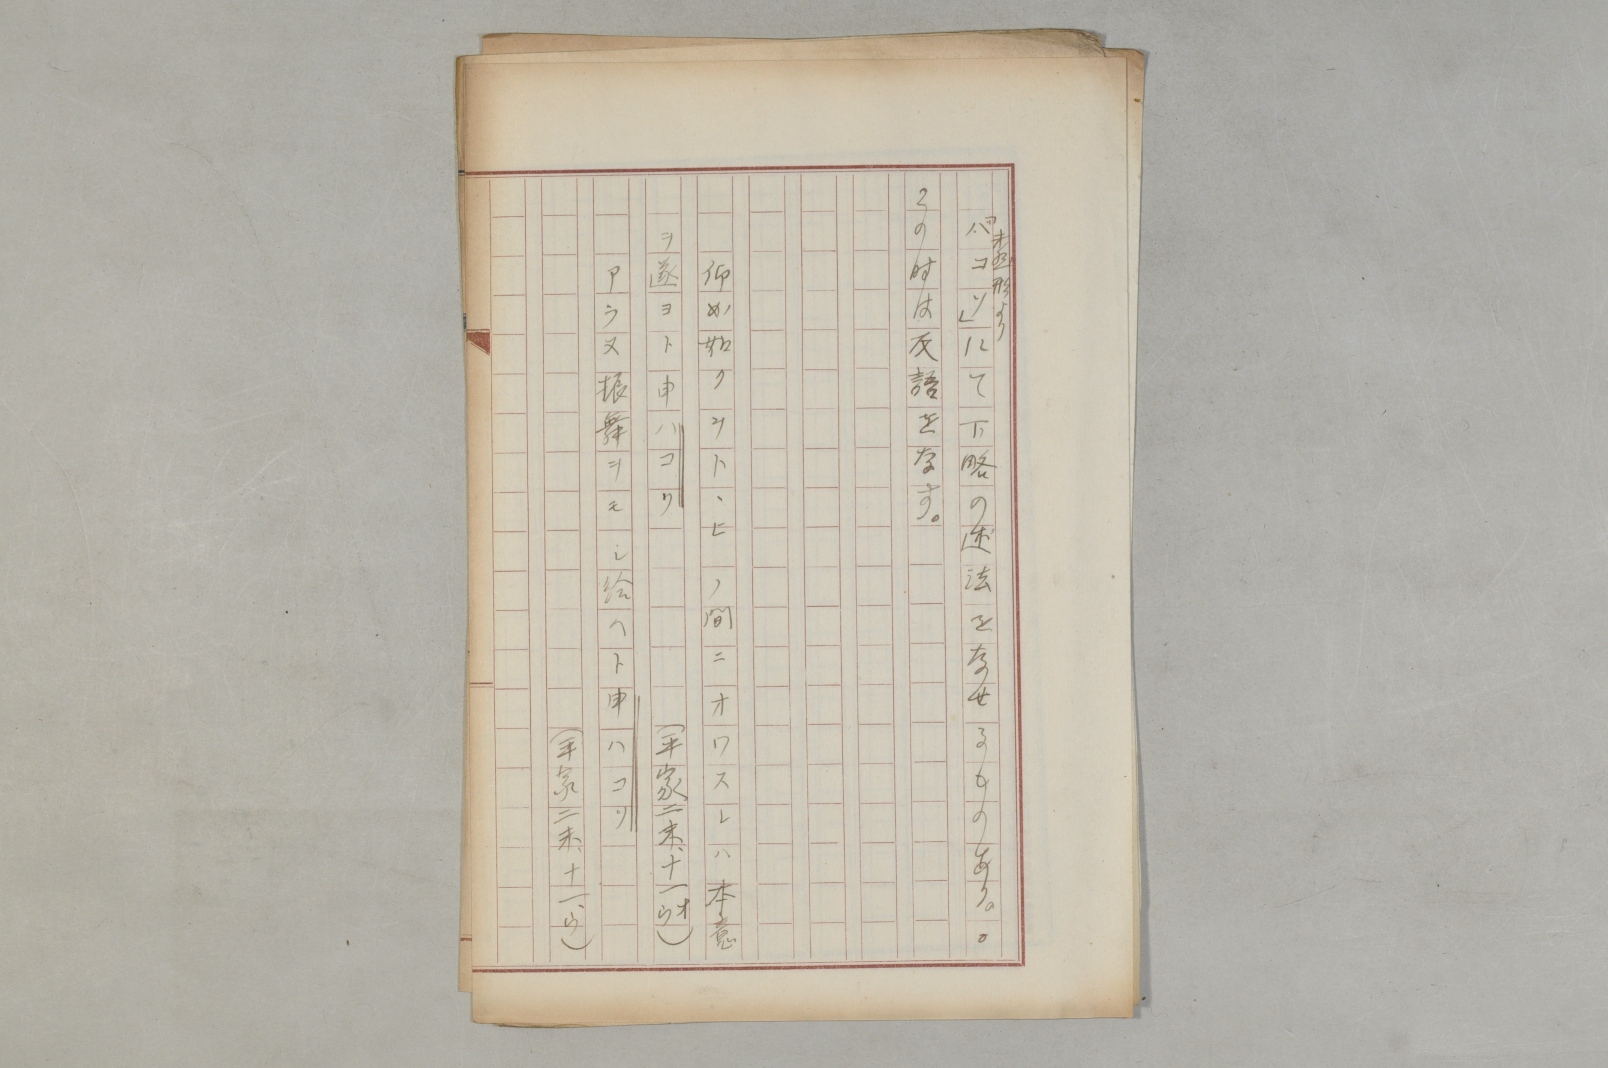 未然形より
「バコソ」にて下略の述法をなせるものあり。
この時は反語をなす。
仰ガ如クヰト、ヒノ間ニオワスレハ本意
ヲ遂ヨト申ハコソ
(平家二末、十一オ)
アラヌ振舞ヲモシ給ヘト申ハコソ
(平家二末、十一ウ)